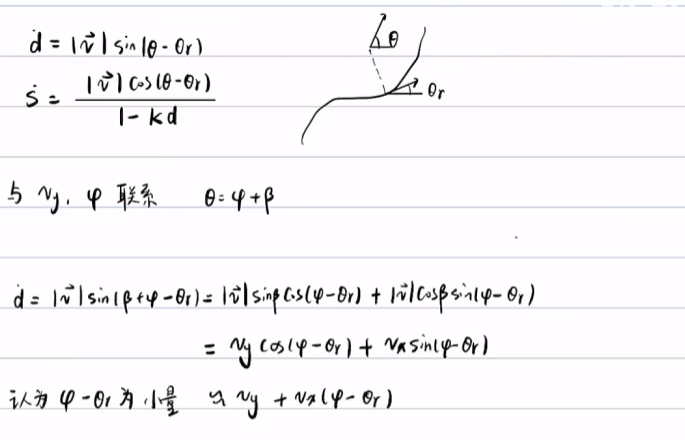 ḋ = |v⃗| sin(θ-θr)
ṡ = |v⃗| cos(θ-θr) / 1-kd
θ
θr
与 vy, φ 联系 θ=φ+β
ḋ = |v⃗| sin(β+φ-θr) = |v⃗| sinβ cos(φ-θr) + |v⃗| cosβ sin(φ-θr)
= vy cos(φ-θr) + vx sin(φ-θr)
认为 φ-θr 为小量 ≈ vy + vx(φ-θr)